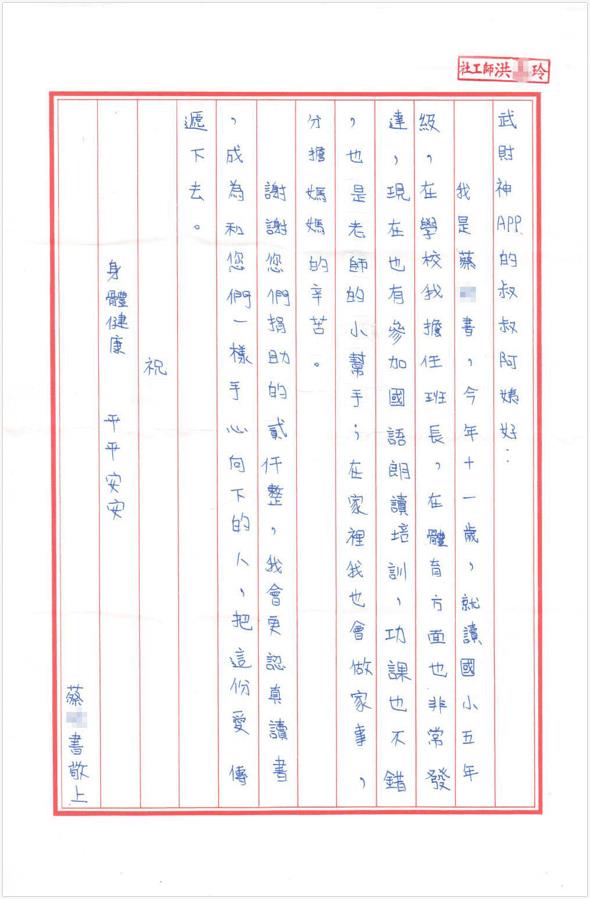 社工師洪玲
武財神APP的叔叔阿姨好：
我是蔡書，今年十一歲，就讀國小五年
級，在學校我擔任班長，在體育方面也非常發
達，現在也有參加國語朗讀培訓，功課也不錯
，也是老師的小幫手；在家裡我也會做家事，
分擔媽媽的辛苦。
謝謝您們捐助的貳仟整，我會更認真讀書
，成為和您們一樣手心向下的人，把這份愛傳
遞下去。
祝
身體健康 平平安安
蔡書敬上